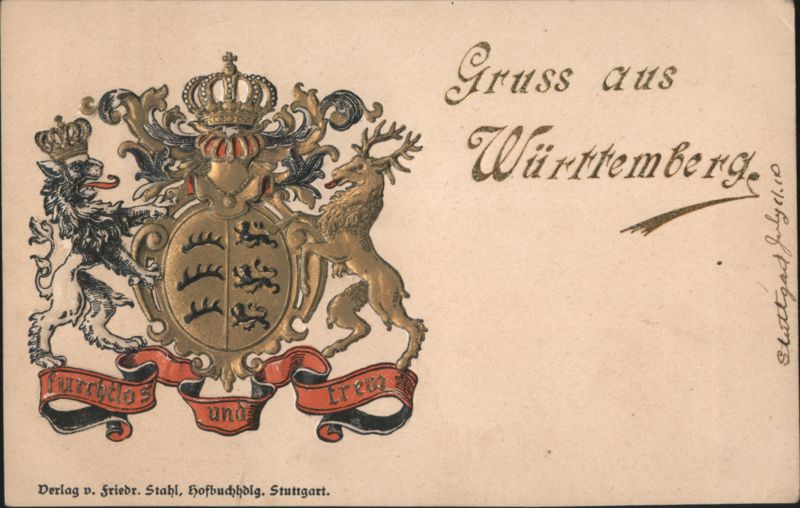 Gruss aus
Württemberg.
furchtlos
und
trew
Verlag v. Friedr. Stahl, Hofbuchhdlg. Stuttgart.
Stuttgart July 11.10